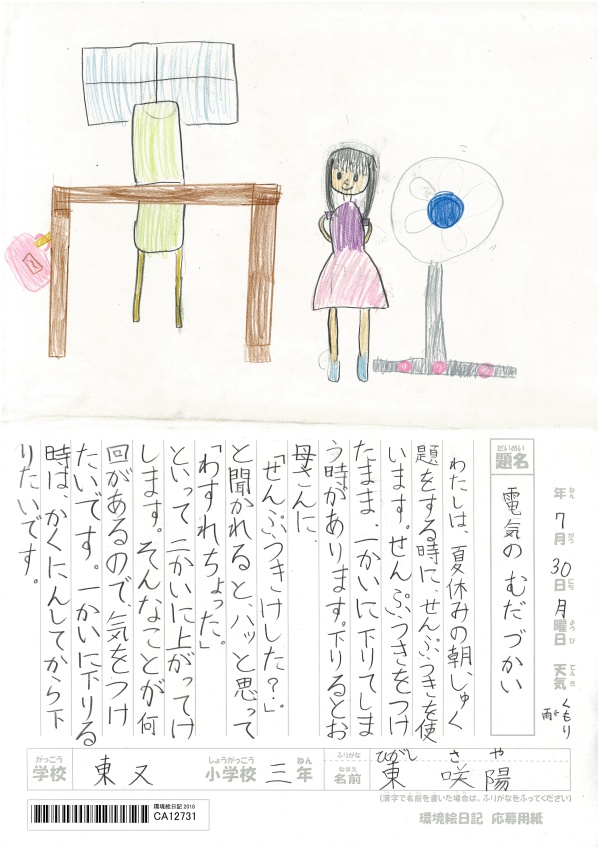 年 7月 30日 月曜日 天気 くもり 雨
ねん がつ にち ようび てんき
だいめい
題名 電気の むだづかい
わたしは、夏休みの朝、しゅく
題をする時に、せんぷうきを使
います。せんぷうきをつけ
たまま、一かいに下りてしま
う時があります。下りるとお
母さんに、
「せんぷうきけした？」
と聞かれると、ハッと思って
「わすれちゃった。」
といって、二かいに上がってけ
します。そんなことが何
回があるので、気をつけ
たいです。一かいに下りる
時は、かくにんしてから下
りたいです。
がっこう しょうがっこう ねん
学校 東又 小学校 三年
ふりがな ひがし さや
なまえ
名前 東 咲陽
(漢字で名前を書いた場合は、ふりがなをふってください)
環境絵日記 2018
CA12731
環境絵日記 応募用紙